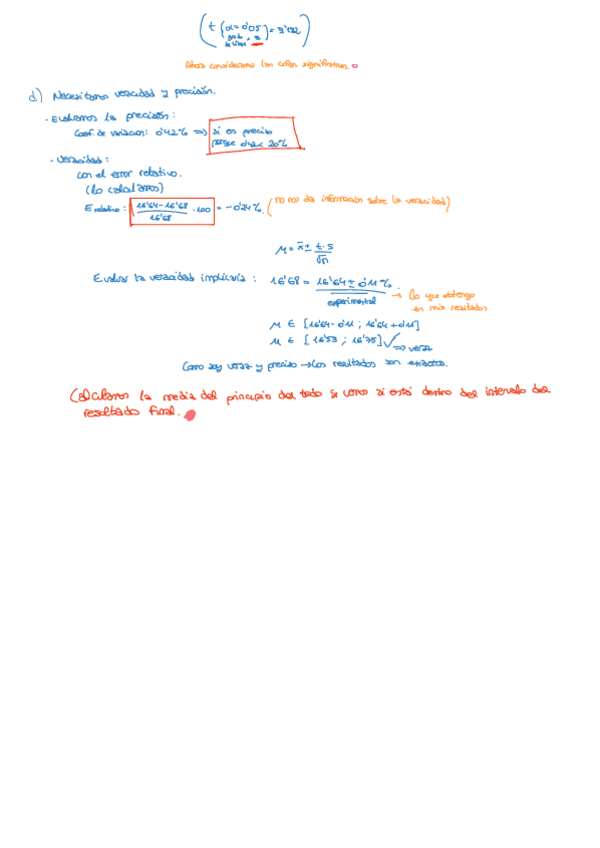 ( t { α = 0'05 } = 3'182 )
Ahora consideramos las cifras significativas.
d) Necesitamos veracidad y precisión.
- Evaluamos la precisión:
Coef. de variación: 0'42% => si es preciso
porque 0'42 < 20%
- Veracidad:
con el error relativo.
(lo calculamos)
E relativo: 16'64 - 16'68 / 16'68 · 100 = -0'24%. (no nos da información sobre la veracidad)
μ = x̄ ± t · s / √n
Evaluar la veracidad implicaría: 16'68 = 16'64 ± 0'11 %.
experimental → Lo que obtengo
en mis resultados
μ ∈ [16'64 - 0'11 ; 16'64 + 0'11]
μ ∈ [16'53 ; 16'75] ✓ => veraz
Como soy veraz y preciso → Los resultados son exactos.
Calculamos la media del principio del todo y vemos si está dentro del intervalo del
resultado final.